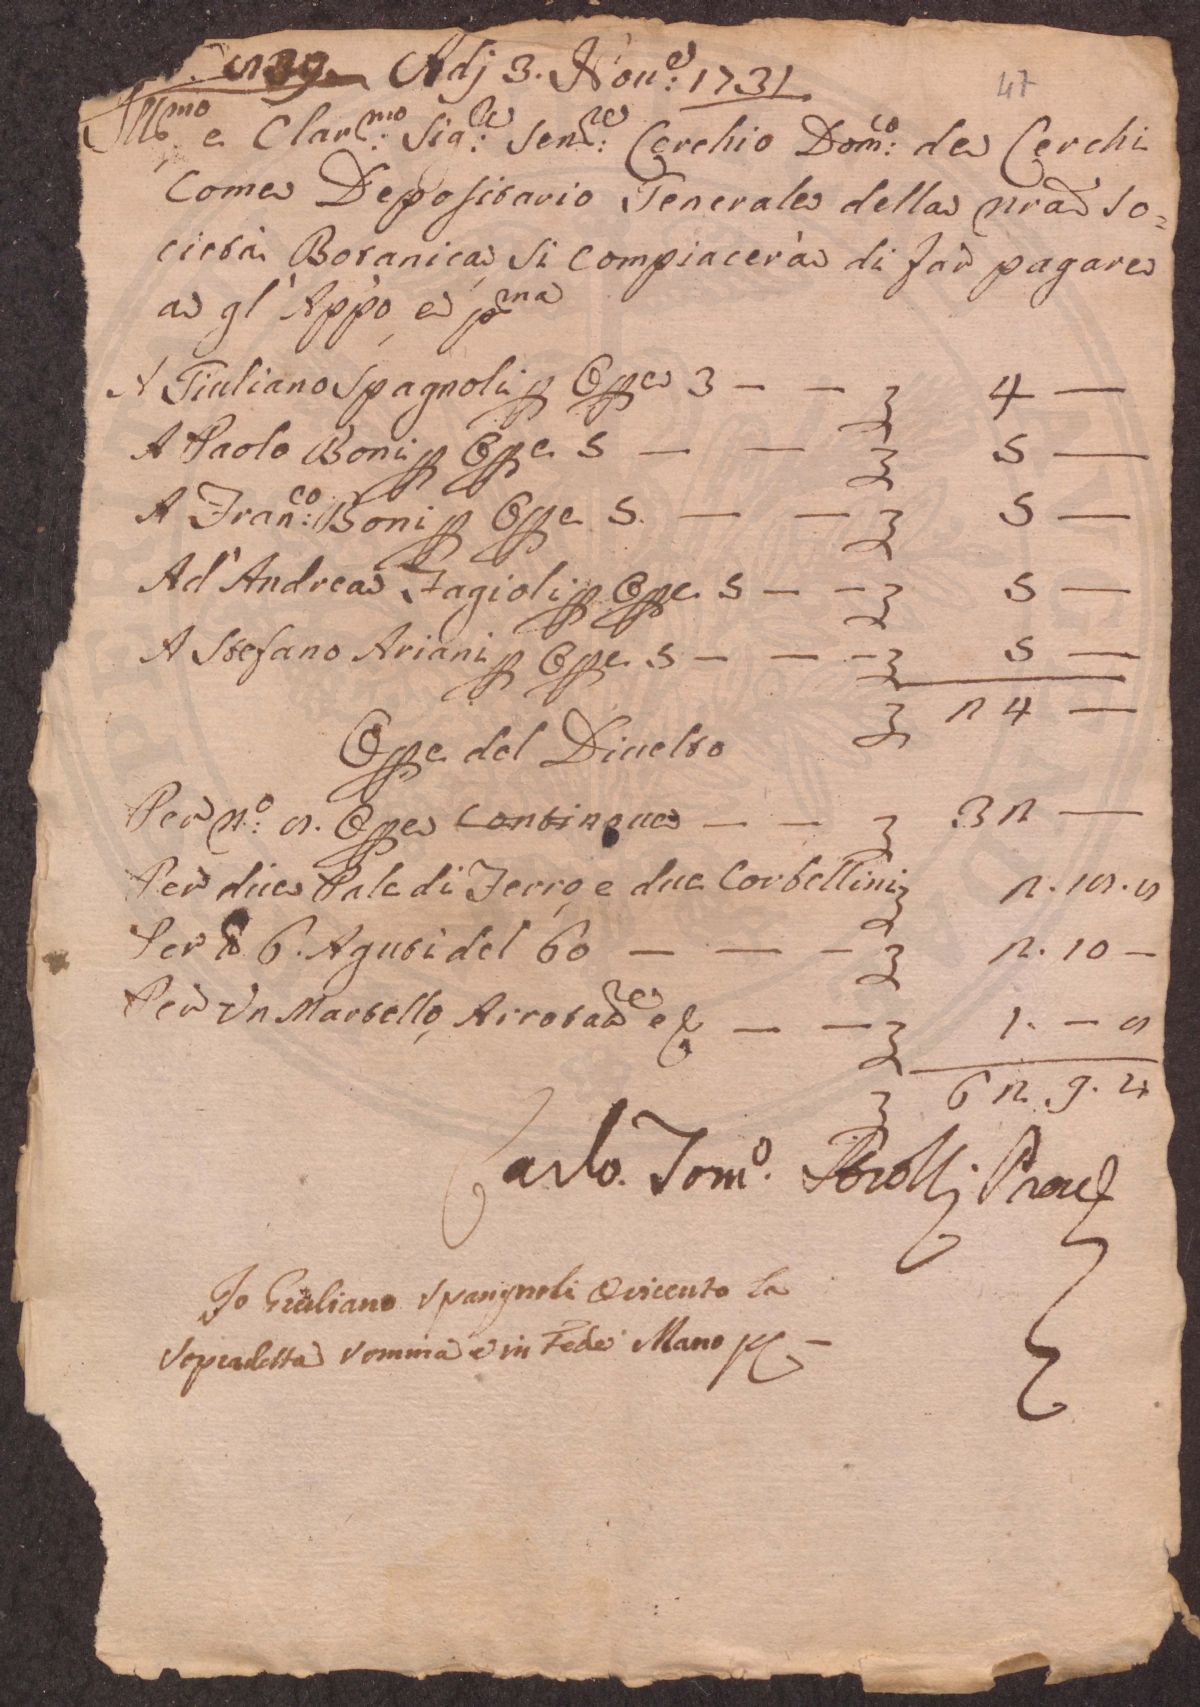 Adj 3. Nou.e: 1731
47
Ill.mo e Clar.mo: Sig.re: Sen.re: Cerchio Dom.co: de Cerchi
Come Depositario Generale della nra So=
cietà Botanica si compiacerà di far pagare
a gl' Appo e pma
A Giuliano Spagnoli p Opp.e 3 — — 4 —
A Paolo Boni p Opp.e 5 — — 5 —
A Fran.co: Boni p Opp.e 5. — — 5 —
Ad' Andrea Fagioli p Opp.e 5 — — 5 —
A Stefano Ariani p Opp.e 5 — — — 5 —
24 —
Opp.e del Diuelto
Per n.o: Opp.e continoue — — 32 —
Per due Pale di Ferro e due Corbellini
Per 6. Aguti del 60 — — — 2. 10 —
Per un Martello Arrotare — — 1. —
62. 9. 4
Carlo Tom.o
Io Giuliano Spangnoli O riceuto la
sopradetta somma e in Fede Mano pp —